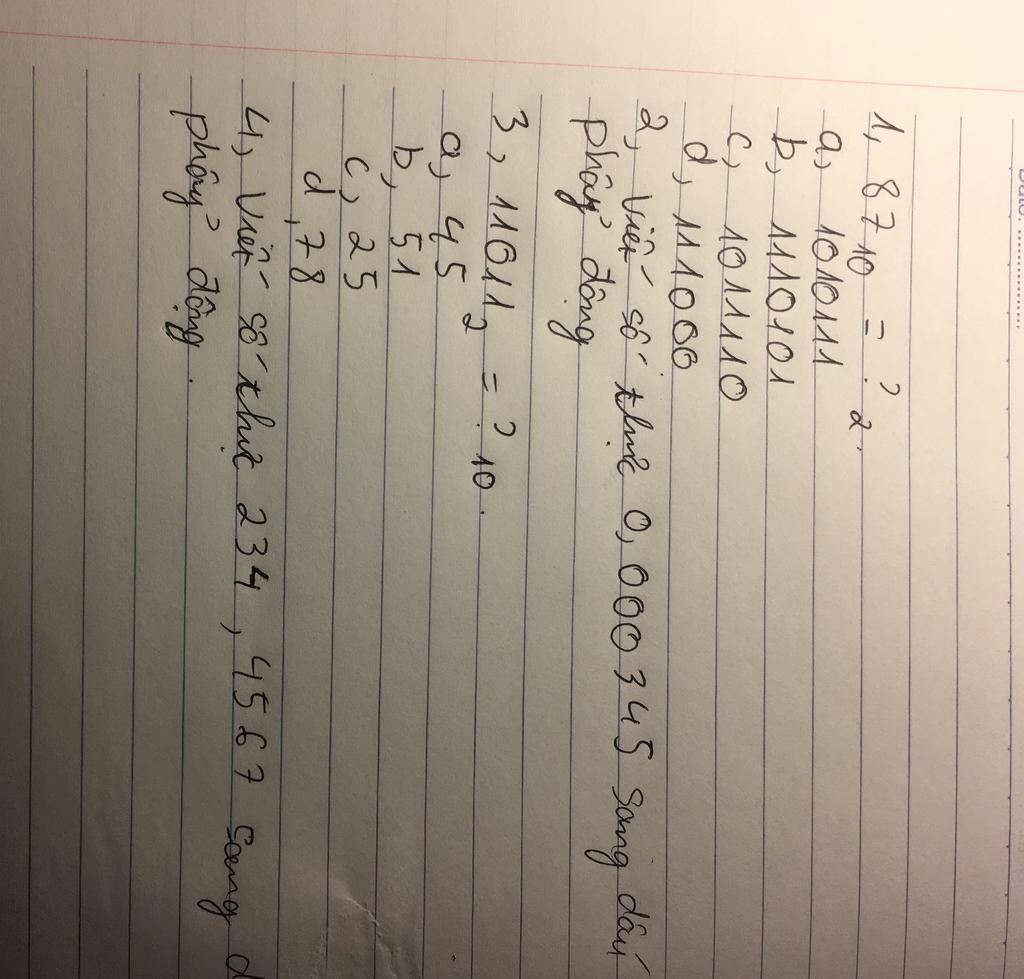 Date: ....................
1, 87₁₀ = ?₂.
a, 1010111
b, 1110101
c, 101110
d, 111000
2, Viết số thực 0,000345 sang dấu
phẩy động
3, 11011₂ = ?₁₀.
a, 45
b, 51
c, 25
d, 78
4, Viết số thực 234,4567 sang d
phẩy động.